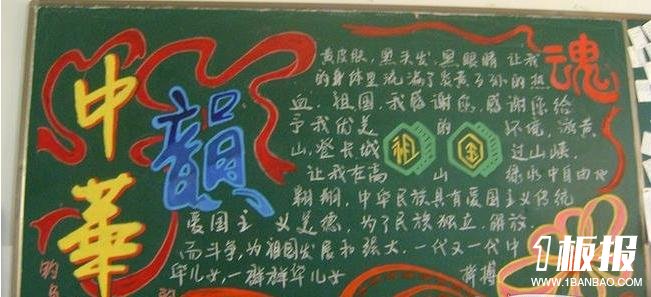 中華
韻
魂
黄皮肤，黑头发，黑眼睛让我
的身体里流满了炎黄子孙的热
血．祖国，我感谢您，感谢您给
予我优美的环境，游黄
山，登长城 祖国 过山峡，
让我在高山绿水中自由地
翱翔，中华民族具有爱国主义传统
爱国主义美德，为了民族独立，解放，
而斗争，为祖国发展和强大，一代又一代中
华儿女，一群群华儿女
的
1板报
WWW.1BANBAO.COM